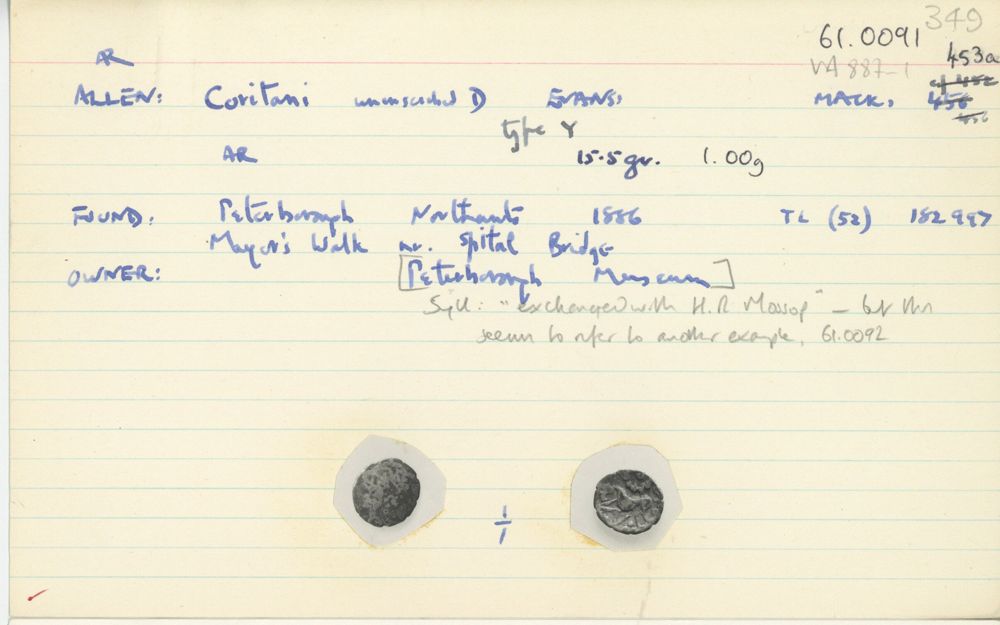 349
61.0091
AR VA 887-1 453a
ALLEN: Coritani uninscribed D EVANS: MACK. cf 452 456
456
type Y
AR 15.5gr. 1.00g
FOUND: Peterborough Northants 1886 TL (52) 182 997
Mayor's Walk nr. Spital Bridge
OWNER: [Peterborough Museum]
Syll: "exchanged with H.R Mossop" – but this
seems to refer to another example, 61.0092
1/1